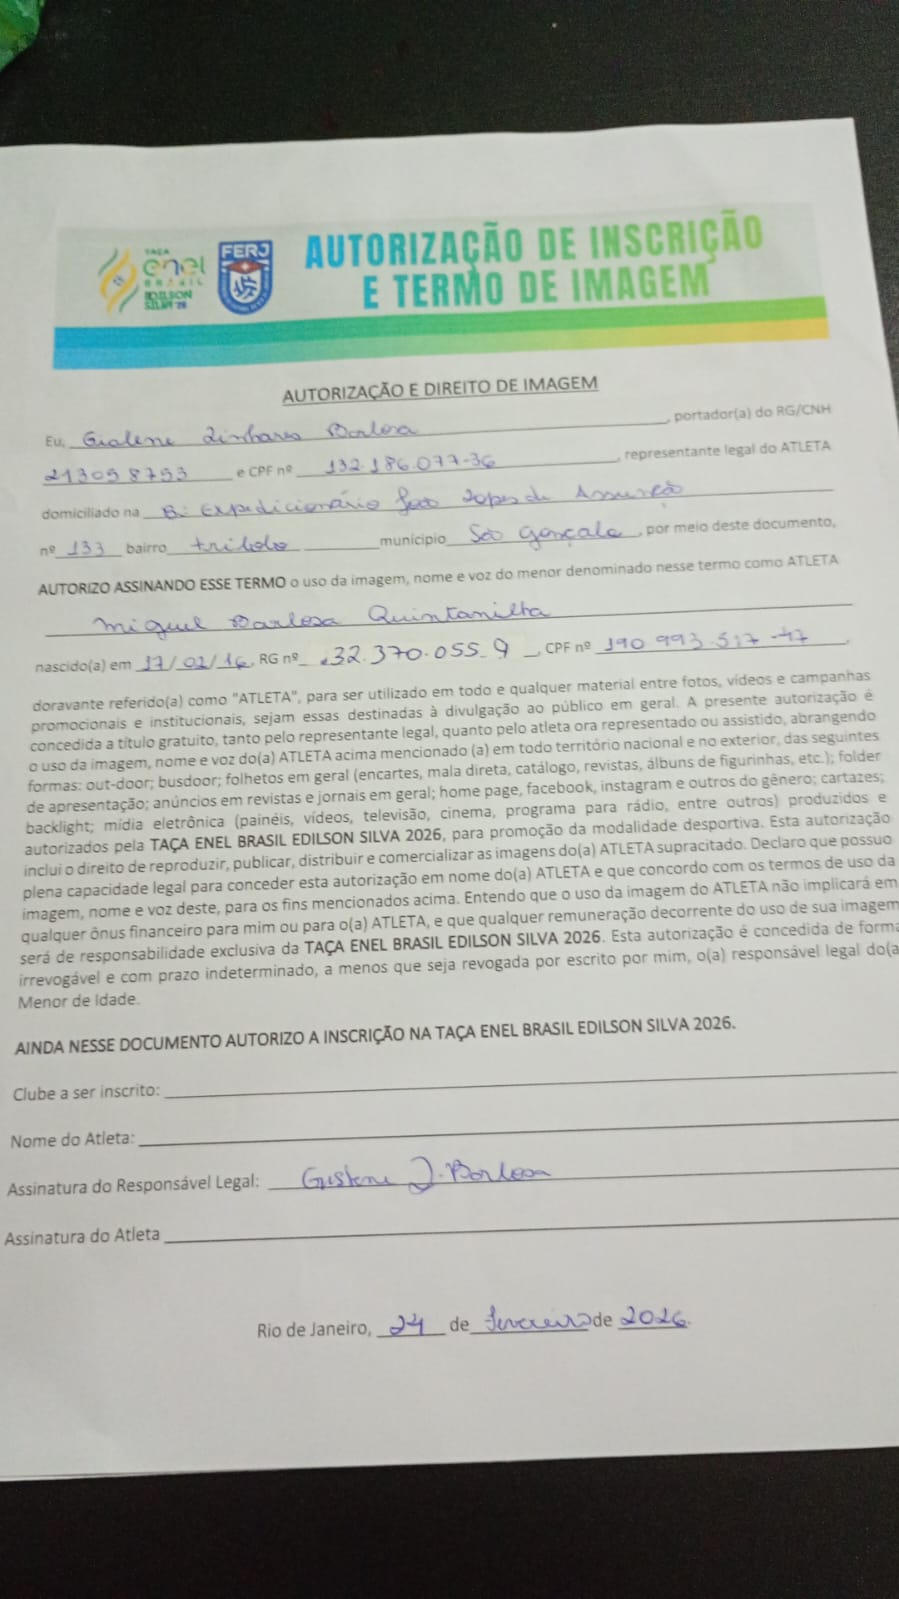 TAÇA
enel
BRASIL
EDILSON
SILVA
FERJ
AUTORIZAÇÃO DE INSCRIÇÃO
E TERMO DE IMAGEM
AUTORIZAÇÃO E DIREITO DE IMAGEM
Eu, Linhares Barbosa, portador(a) do RG/CNH
213098793 e CPF nº 132.186.077-36, representante legal do ATLETA
domiciliado na R: Expedicionário João Lopes de Assunção
nº 133 bairro tribobo município São Gonçalo, por meio deste documento,
AUTORIZO ASSINANDO ESSE TERMO o uso da imagem, nome e voz do menor denominado nesse termo como ATLETA
Miguel Barbosa Quintanilha
nascido(a) em 17/02/16, RG nº 32.370.055_9, CPF nº 190 993.517-47,
doravante referido(a) como "ATLETA", para ser utilizado em todo e qualquer material entre fotos, vídeos e campanhas
promocionais e institucionais, sejam essas destinadas à divulgação ao público em geral. A presente autorização é
concedida a título gratuito, tanto pelo representante legal, quanto pelo atleta ora representado ou assistido, abrangendo
o uso da imagem, nome e voz do(a) ATLETA acima mencionado (a) em todo território nacional e no exterior, das seguintes
formas: out-door; busdoor; folhetos em geral (encartes, mala direta, catálogo, revistas, álbuns de figurinhas, etc.); folder
de apresentação; anúncios em revistas e jornais em geral; home page, facebook, instagram e outros do gênero; cartazes;
backlight; mídia eletrônica (painéis, vídeos, televisão, cinema, programa para rádio, entre outros) produzidos e
autorizados pela TAÇA ENEL BRASIL EDILSON SILVA 2026, para promoção da modalidade desportiva. Esta autorização
inclui o direito de reproduzir, publicar, distribuir e comercializar as imagens do(a) ATLETA supracitado. Declaro que possuo
plena capacidade legal para conceder esta autorização em nome do(a) ATLETA e que concordo com os termos de uso da
imagem, nome e voz deste, para os fins mencionados acima. Entendo que o uso da imagem do ATLETA não implicará em
qualquer ônus financeiro para mim ou para o(a) ATLETA, e que qualquer remuneração decorrente do uso de sua imagem
será de responsabilidade exclusiva da TAÇA ENEL BRASIL EDILSON SILVA 2026. Esta autorização é concedida de forma
irrevogável e com prazo indeterminado, a menos que seja revogada por escrito por mim, o(a) responsável legal do(a
Menor de Idade.
AINDA NESSE DOCUMENTO AUTORIZO A INSCRIÇÃO NA TAÇA ENEL BRASIL EDILSON SILVA 2026.
Clube a ser inscrito:
Nome do Atleta:
Assinatura do Responsável Legal: L. Barbosa
Assinatura do Atleta
Rio de Janeiro, 24 de fevereiro de 2026.